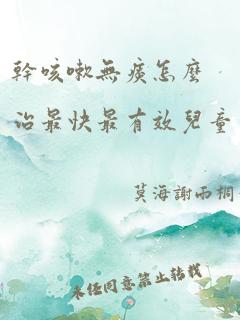 幹咳嗽無痰怎麼
治最快最有效兒童
莫海謝雨桐
未經同意禁止轉載